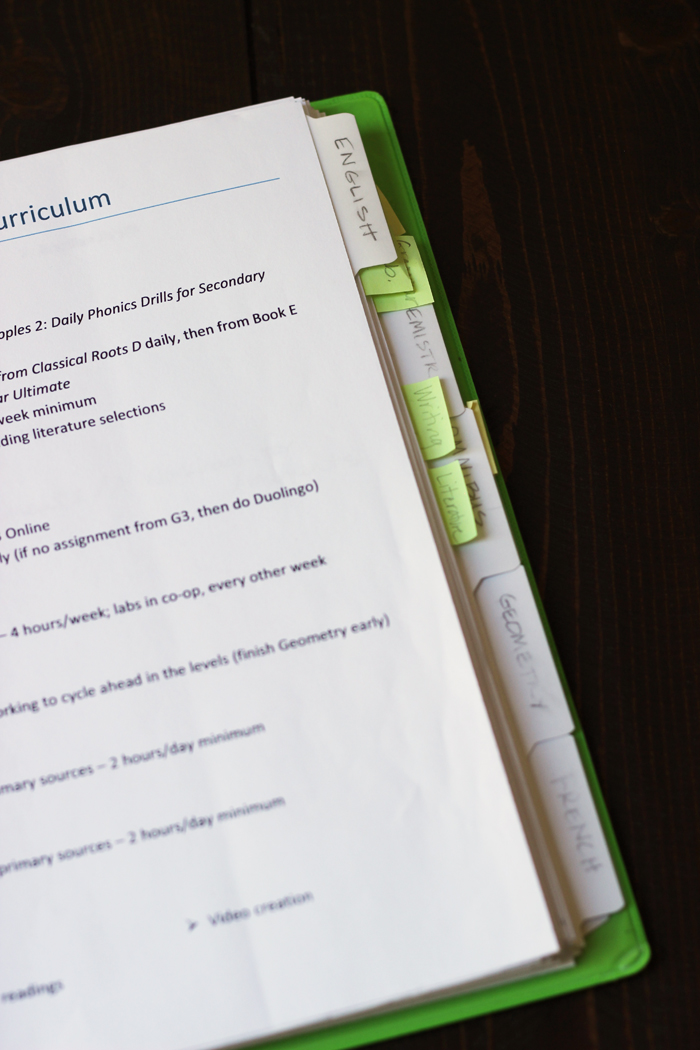 urriculum
pples 2: Daily Phonics Drills for Secondary
from Classical Roots D daily, then from Book E
ar Ultimate
week minimum
ding literature selections
s Online
ly (if no assignment from G3, then do Duolingo)
– 4 hours/week; labs in co-op, every other week
orking to cycle ahead in the levels (finish Geometry early)
mary sources – 2 hours/day minimum
primary sources – 2 hours/day minimum
➢ Video creation
readings
ENGLISH
EMISTR
Writing
NIBUS
Literature
GEOMETRY
FRENCH